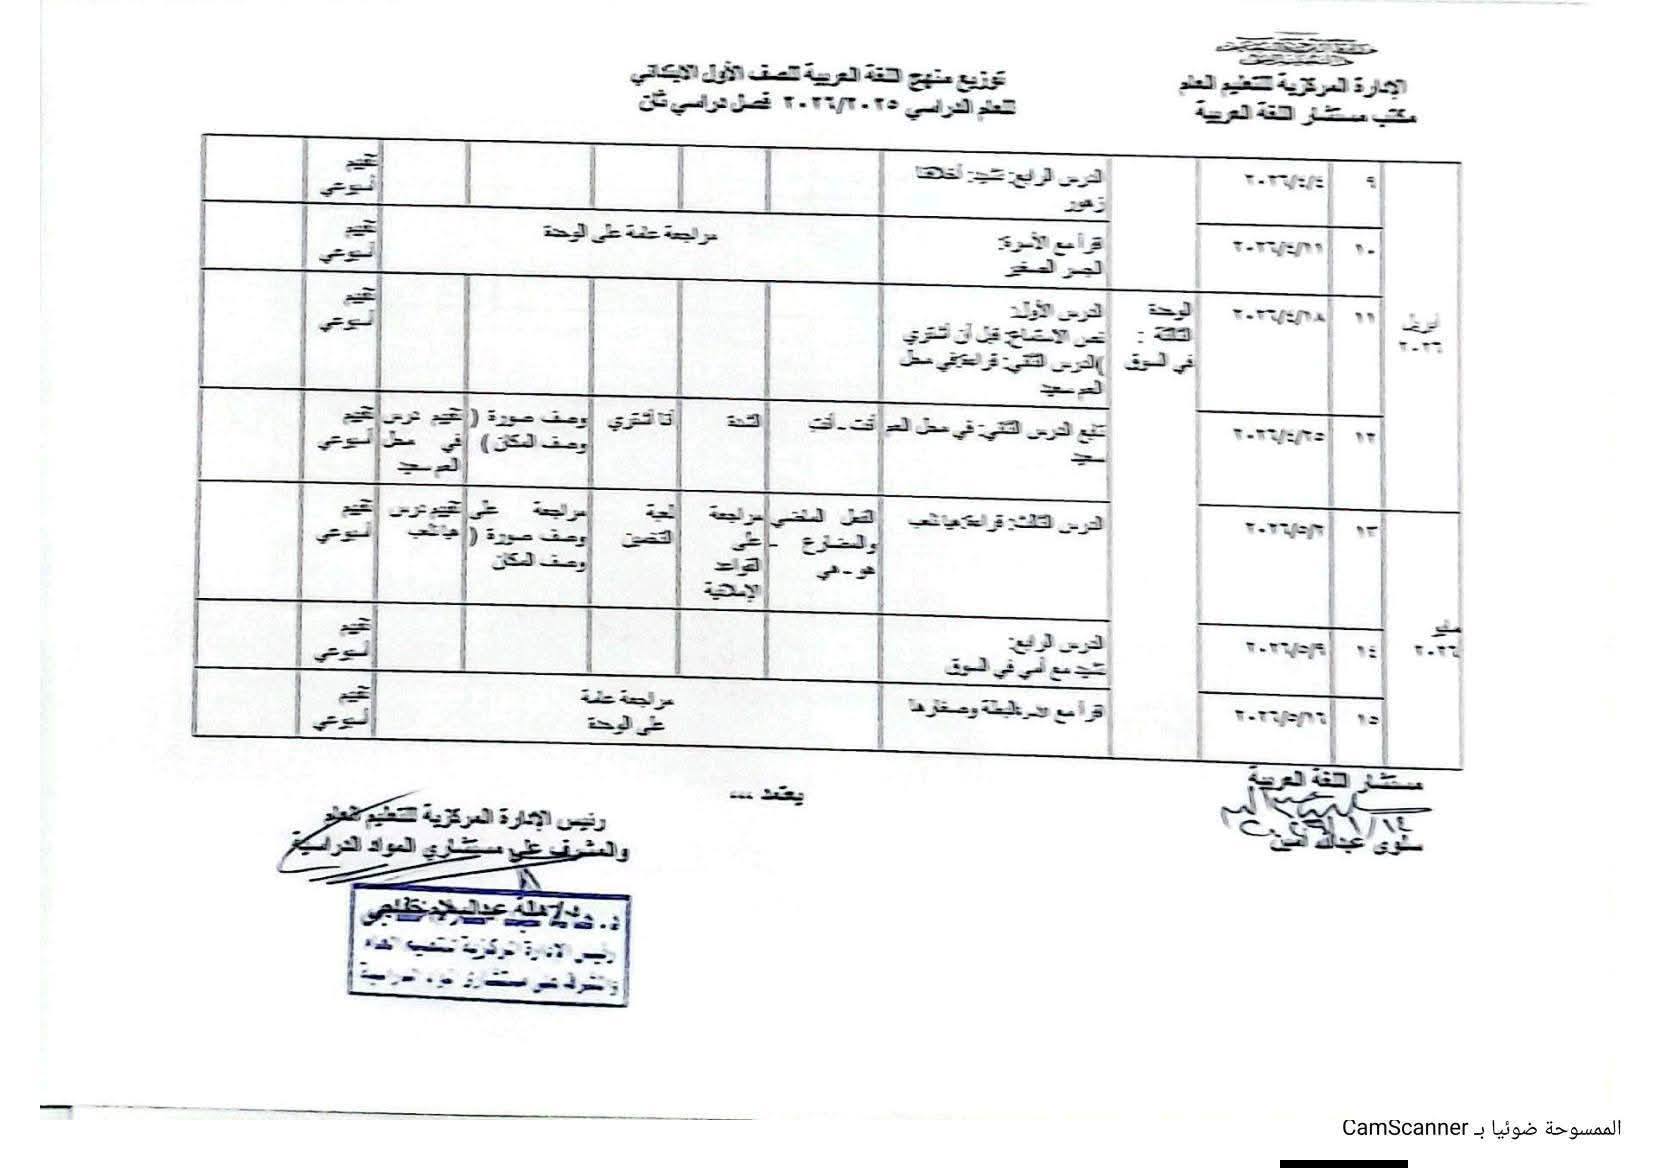 الإدارة المركزية للتعليم العام
مكتب مستشار اللغة العربية
توزيع منهج اللغة العربية للصف الأول الابتدائي
للعام الدراسي ٢٠٢٦/٢٠٢٥ فصل دراسي ثان
أبريل
٢٠٢٦
٩
٢٠٢٦/٤/٤
الدرس الرابع: نشيد: أخلاقنا
زهور
تقييم
أسبوعي
١٠
٢٠٢٦/٤/١١
اقرأ مع الأسرة:
الجسر الصغير
مراجعة عامة على الوحدة
تقييم
أسبوعي
الوحدة
الثالثة :
في السوق
١١
٢٠٢٦/٤/١٨
الدرس الأول:
نص الاستماع: قبل أن أشتري
)الدرس الثاني: قراءة:في محل
العم سعيد
تقييم
أسبوعي
١٢
٢٠٢٦/٤/٢٥
تابع الدرس الثاني: في محل العم
سعيد
أنت - أنتِ
الشدة
أنا أشتري
وصف صورة (
وصف المكان )
تقييم درس
في محل
العم سعيد
تقييم
أسبوعي
مايو
٢٠٢٦
١٣
٢٠٢٦/٥/٢
الدرس الثالث: قراءة:هيا نلعب
الفعل الماضي
والمضارع -
هو - هي
مراجعة
على
القواعد
الإملائية
لعبة
التضمين
مراجعة على
وصف صورة (
وصف المكان
تقييم درس
هيا نلعب
تقييم
أسبوعي
١٤
٢٠٢٦/٥/٩
الدرس الرابع:
نشيد مع أمي في السوق
تقييم
أسبوعي
١٥
٢٠٢٦/٥/١٦
اقرأ مع البطة وصغارها
مراجعة عامة
على الوحدة
تقييم
أسبوعي
مستشار اللغة العربية
عبدالله أمين
يعتمد ...
رئيس الإدارة المركزية للتعليم العام
والمشرف على مستشاري المواد الدراسية
د. هالة عبدالسلام خفاجي
رئيس الإدارة المركزية للتعليم العام
والمشرف على مستشاري المواد الدراسية
الممسوحة ضوئيا بـ CamScanner